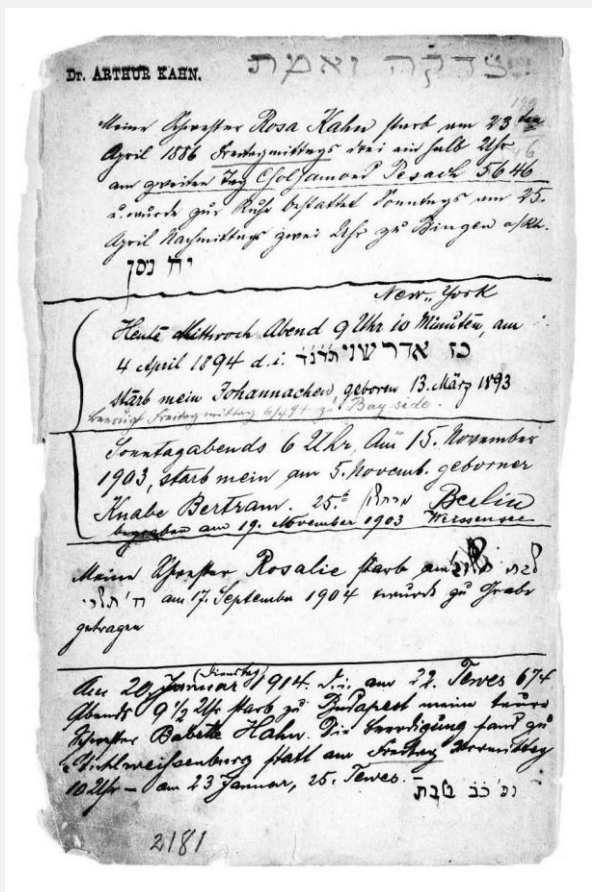 Dr. ARTHUR KAHN.
צדקה ואמת
Meine Schwester Rosa Kahn starb am 23ten
April 1886 Freitagmittags drei ein halb Uhr
am zweiten Tag Chol hamoed Pesach 5646
u. wurde zur Ruhe bestattet Sonntags am 25.
April Nachmittags zwei Uhr zu Bingen a/Rh.
יח ניסן
New-York
Heute Mittwoch Abend 9 Uhr 10 Minuten, am
4 April 1894 d.i. כז אדר שני תרנד
starb mein Johannachen, geboren 13. März 1893
beerdigt Freitag mittag 6/4 94 zu Bay side.
Sonntagabends 6 Uhr, Am 15. November
1903, starb mein am 5. Novemb. geborner
Knabe Bertram. 25. מרחשון Berlin
begraben am 19. November 1903 Weissensee
Meine Schwester Rosalie starb am
ח' תשרי am 17. September 1904 wurde zu Grabe
getragen
Am 20. Januar (Dienstag) 1914. d.i. am 22. Tewes 674
Abends 9 1/2 Uhr starb zu Budapest meine teure
Schwester Babette Hahn. Die Beerdigung fand zu
Stuhlweissenburg statt am Freitag Vormittag
10 Uhr – am 23 Januar, 25. Tewes.
כב טבת
2181